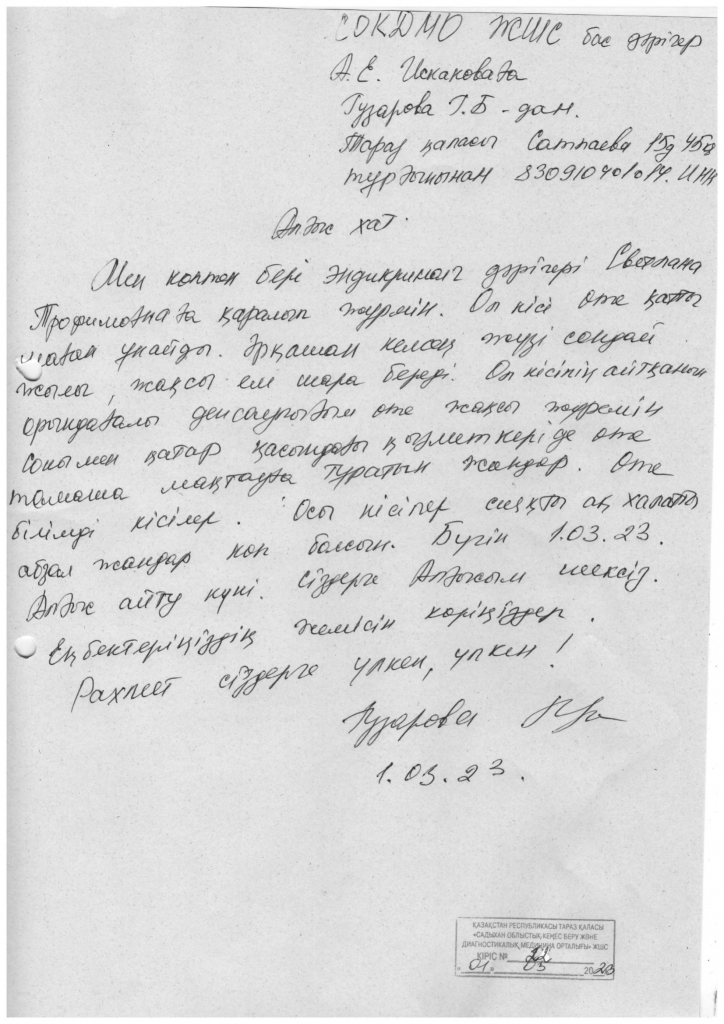 СОКДМО ЖШС бас дәрігер
А.Е. Искаковаға
Гузарова Г.Б - дан.
Тараз қаласы Сатпаева 15д 45кв
тұрғынынан 830910401014. ИНН
Алғыс хат.
Мен көптен бері эндикринолг дәрігері Светлана
Трофимовнаға қаралып жүрмін. Ол кісі өте қатты
маған ұнайды. Әрқашан келсең жүзі сондай
жылы, жақсы ем шара береді. Ол кісінің айтқанын
орындағалы денсаулығым өте жақсы жүрмін
Сонымен қатар қасындағы қызметкеріде өте
тамаша мақтауға тұратын жандар. Өте
білімді кісілер. Осы кісілер сияқты ақ халатты
абзал жандар көп болсын. Бүгін 1.03.23.
Алғыс айту күні. Сіздерге Алғысым шексіз.
Еңбектеріңіздің жемісін көріңіздер.
Рахмет сіздерге үлкен, үлкен!
Гузарова
1.03.23.
ҚАЗАҚСТАН РЕСПУБЛИКАСЫ ТАРАЗ ҚАЛАСЫ
«САДЫХАН ОБЛЫСТЫҚ КЕҢЕС БЕРУ ЖӘНЕ
ДИАГНОСТИКАЛЫҚ МЕДИЦИНА ОРТАЛЫҒЫ» ЖШС
КІРІС № 22
"01" 03 2023